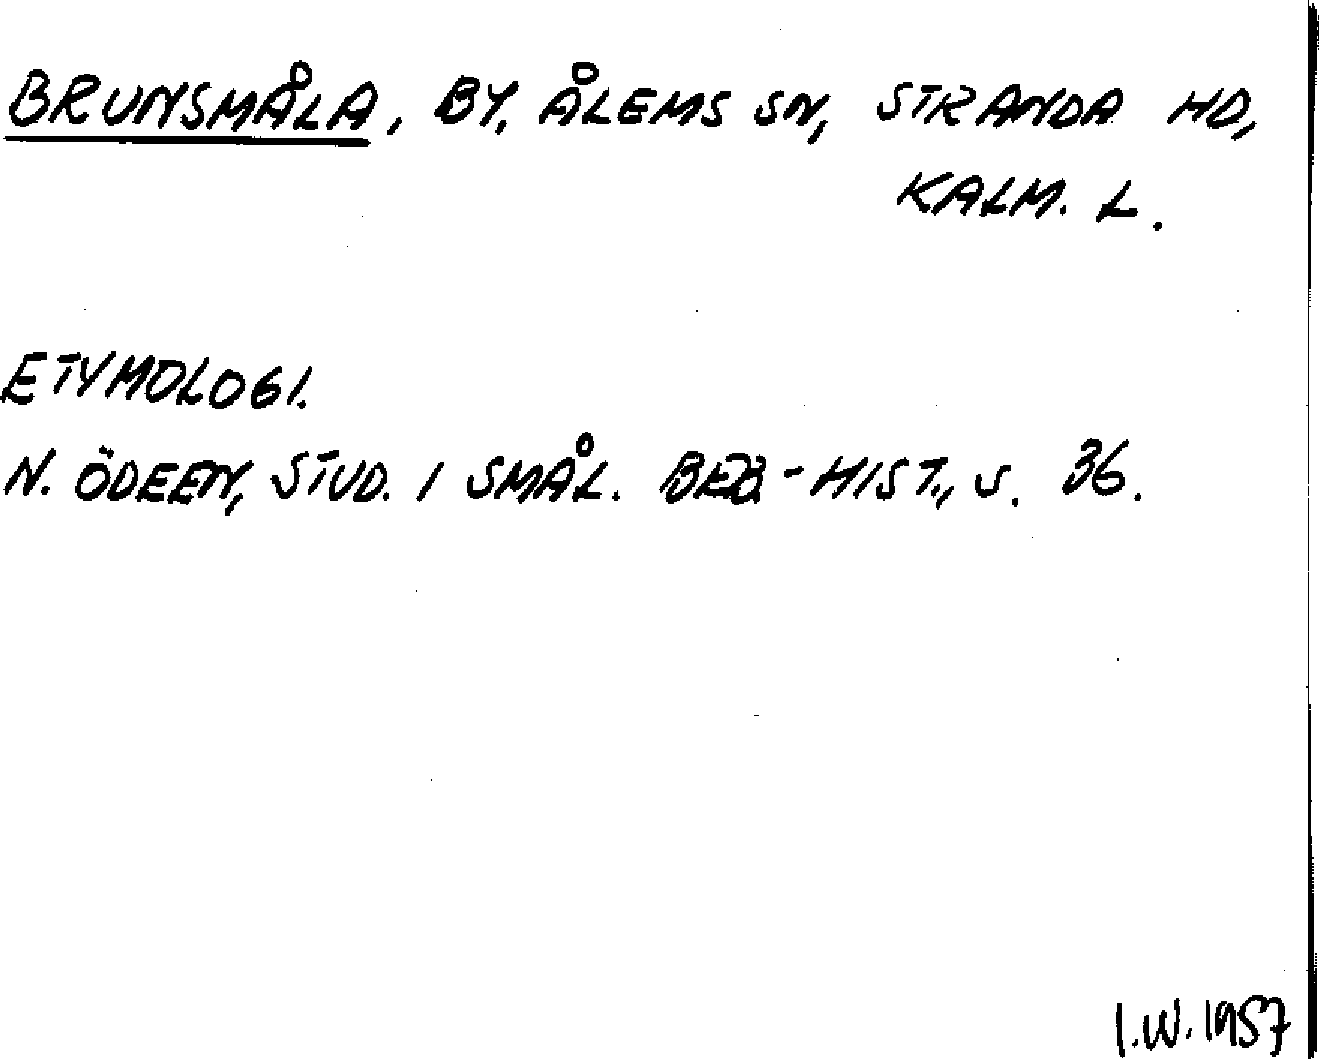 BRUNSMÅLA, BY, ÅLEMS SN, STRANDA HD,
KALM. L.
ETYMOLOGI.
N. ÖDEEN, STUD. I SMÅL. BEB.-HIST., S. 36.
I.W. 1957